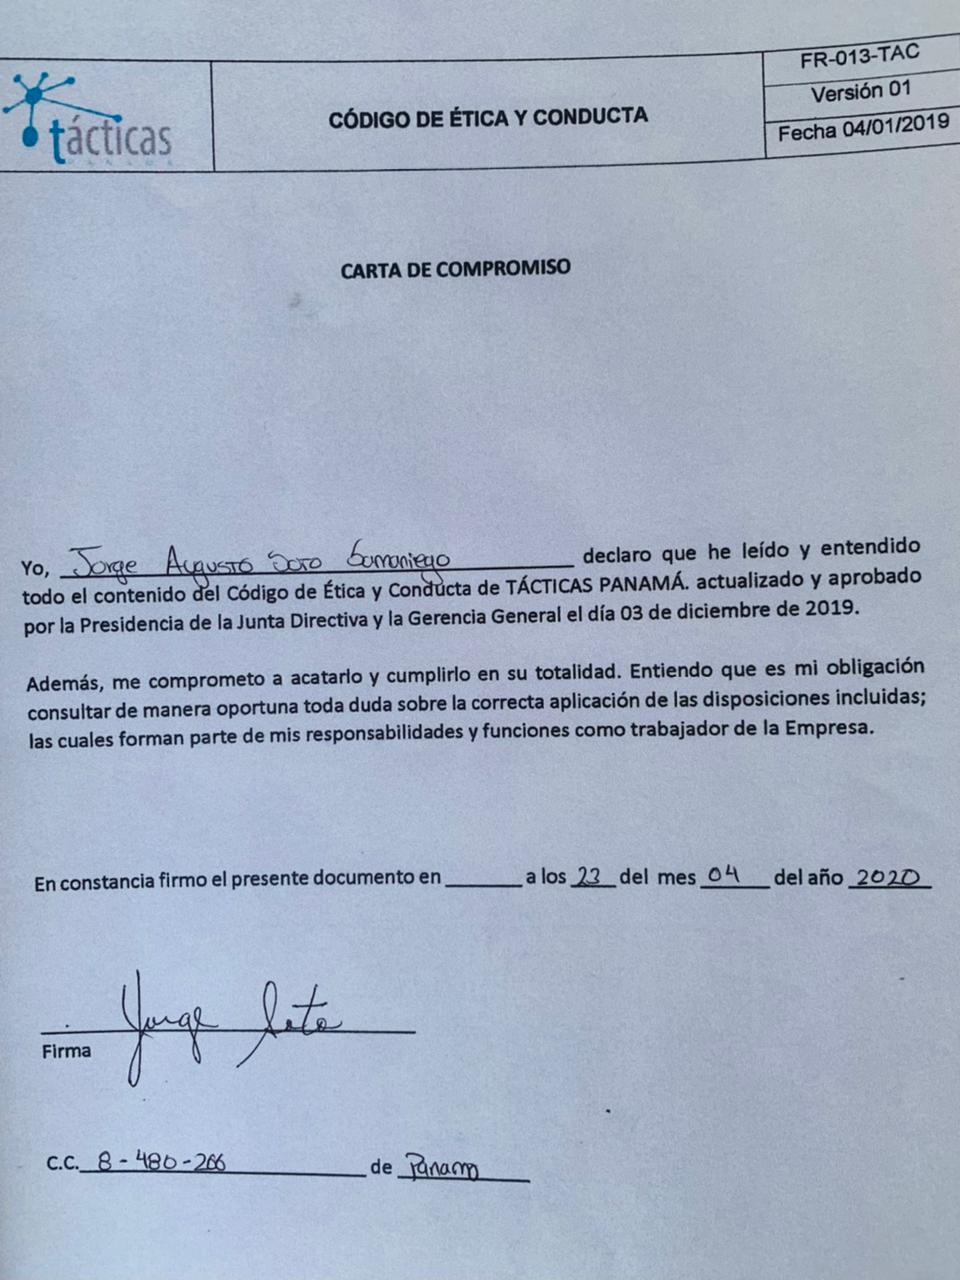 tácticas
PANAMÁ
CÓDIGO DE ÉTICA Y CONDUCTA
FR-013-TAC
Versión 01
Fecha 04/01/2019
CARTA DE COMPROMISO
Yo, Jorge Augusto Soto Samaniego declaro que he leído y entendido
todo el contenido del Código de Ética y Conducta de TÁCTICAS PANAMÁ. actualizado y aprobado
por la Presidencia de la Junta Directiva y la Gerencia General el día 03 de diciembre de 2019.
Además, me comprometo a acatarlo y cumplirlo en su totalidad. Entiendo que es mi obligación
consultar de manera oportuna toda duda sobre la correcta aplicación de las disposiciones incluidas;
las cuales forman parte de mis responsabilidades y funciones como trabajador de la Empresa.
En constancia firmo el presente documento en ______ a los 23 del mes 04 del año 2020
Jorge Soto
Firma
C.C. 8-480-266 de Panama